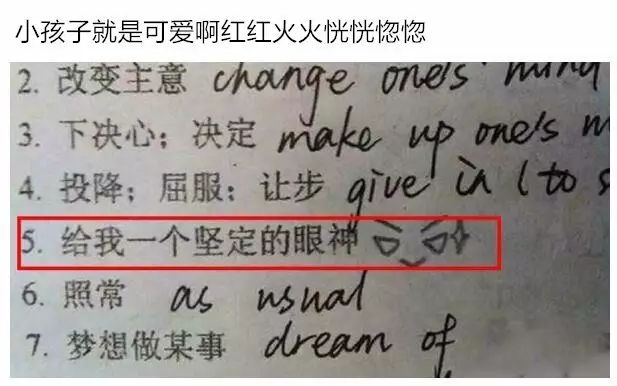 小孩子就是可爱啊红红火火恍恍惚惚
2. 改变主意 change one's mind
3. 下决心；决定 make up one's m
4. 投降；屈服；让步 give in (to s
5. 给我一个坚定的眼神
6. 照常 as usual
7. 梦想做某事 dream of